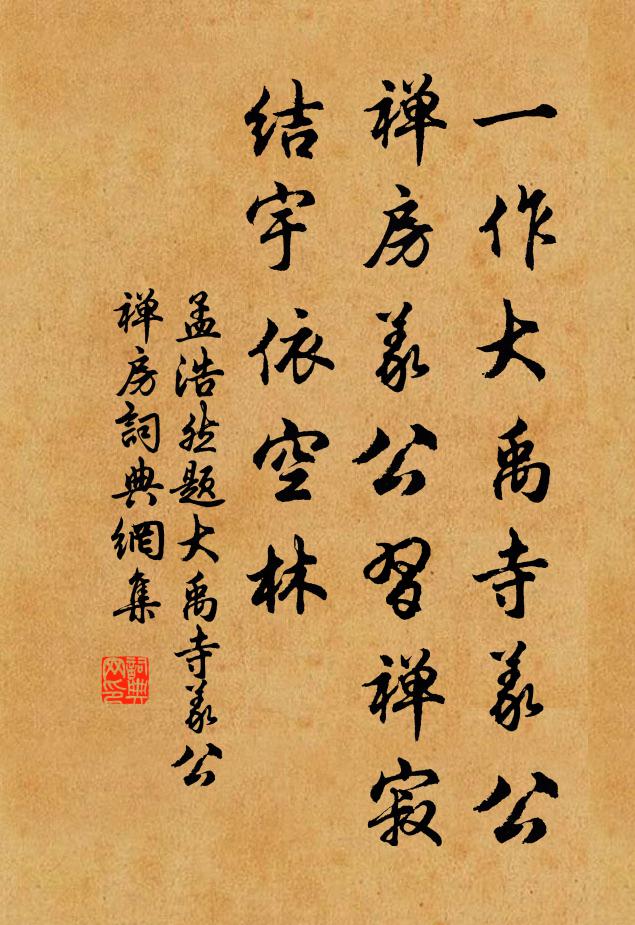 一作大禹寺義公
禅房義公習禅寂
结宇依空林
孟浩然题大禹寺義公
禅房詞典網集
詞典网印